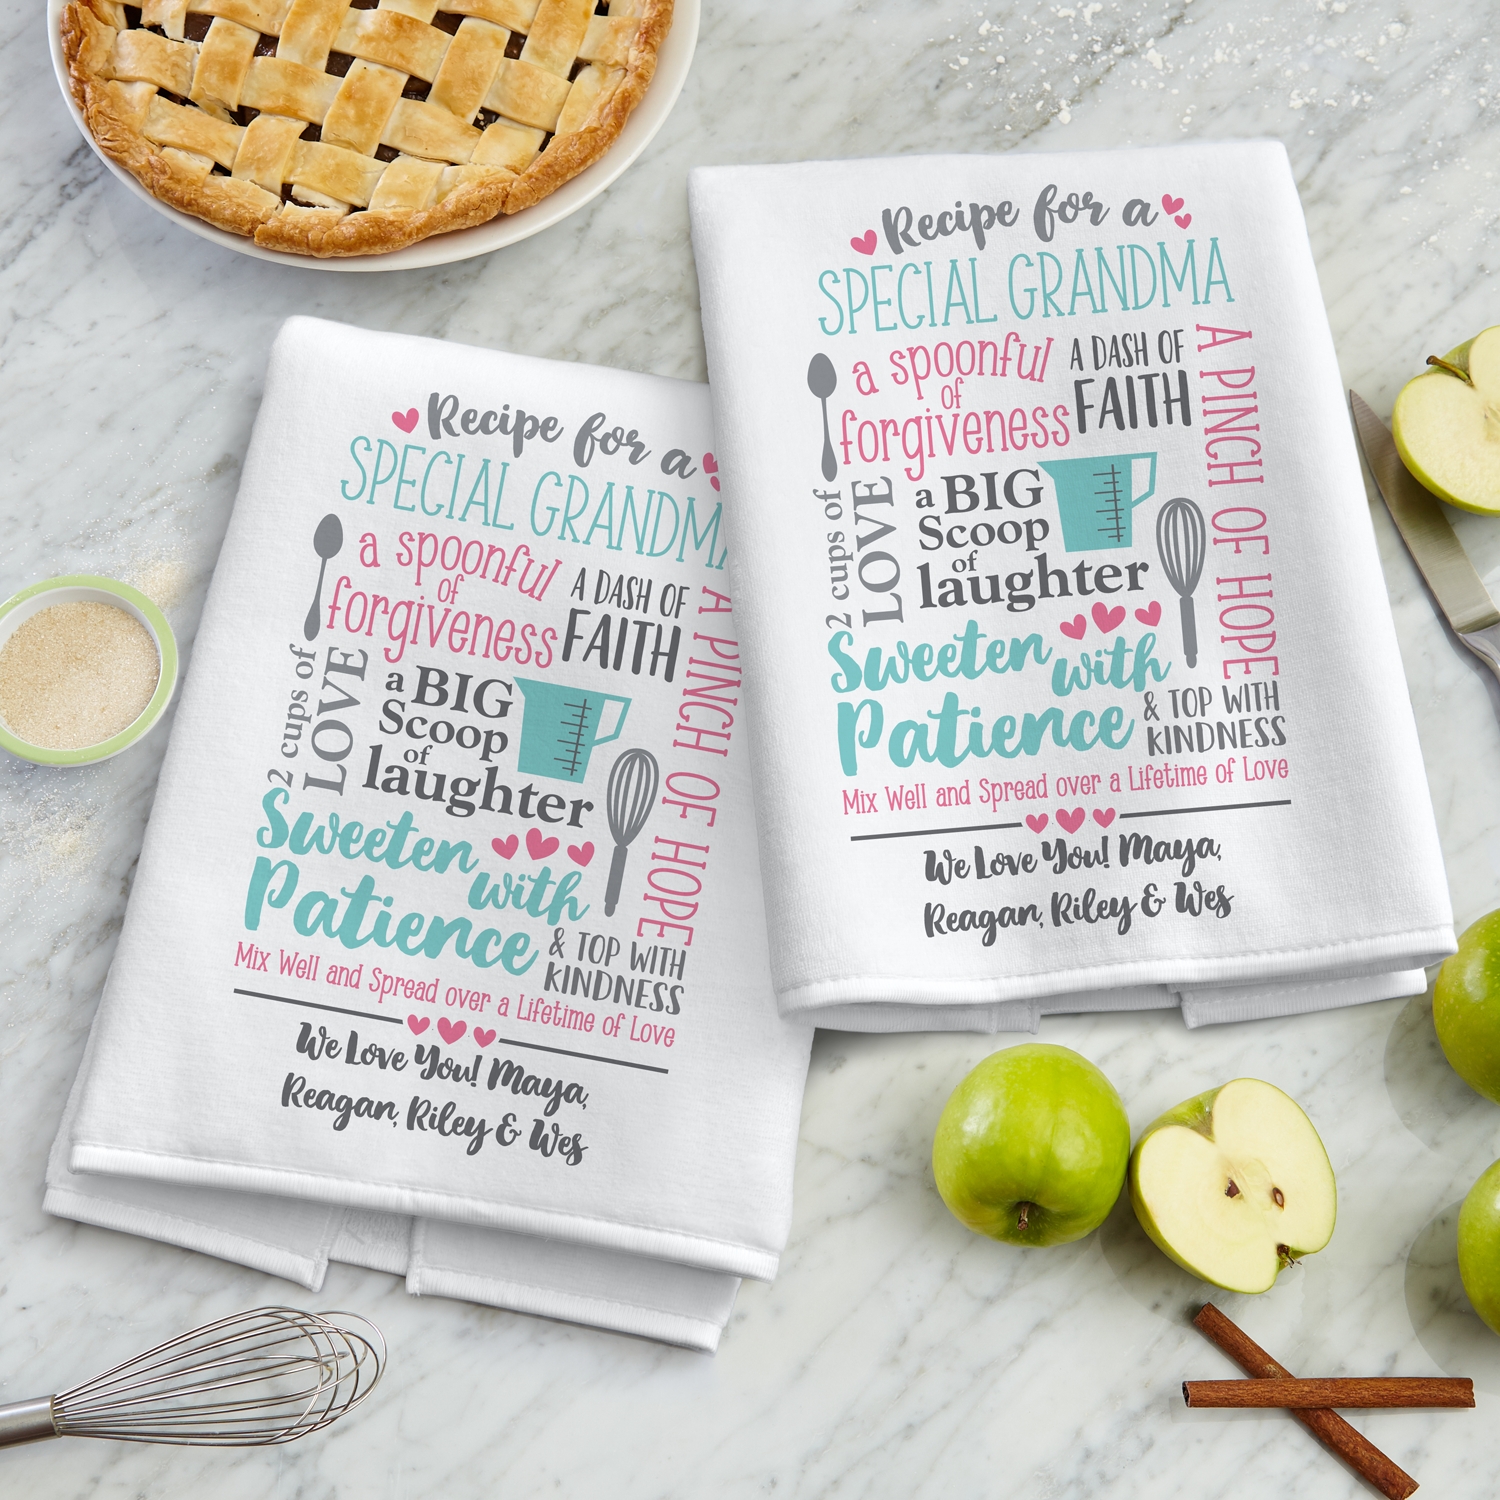 Recipe for a
SPECIAL GRANDMA
a spoonful
of
forgiveness
A DASH OF
FAITH
A PINCH OF HOPE
2 cups of
LOVE
a BIG
Scoop
of
laughter
Sweeten
with
Patience
& TOP WITH
KINDNESS
Mix Well and Spread over a Lifetime of Love
We Love You! Maya,
Reagan, Riley & Wes
Recipe for a
SPECIAL GRANDMA
a spoonful
of
forgiveness
A DASH OF
FAITH
A PINCH OF HOPE
2 cups of
LOVE
a BIG
Scoop
of
laughter
Sweeten
with
Patience
& TOP WITH
KINDNESS
Mix Well and Spread over a Lifetime of Love
We Love You! Maya,
Reagan, Riley & Wes